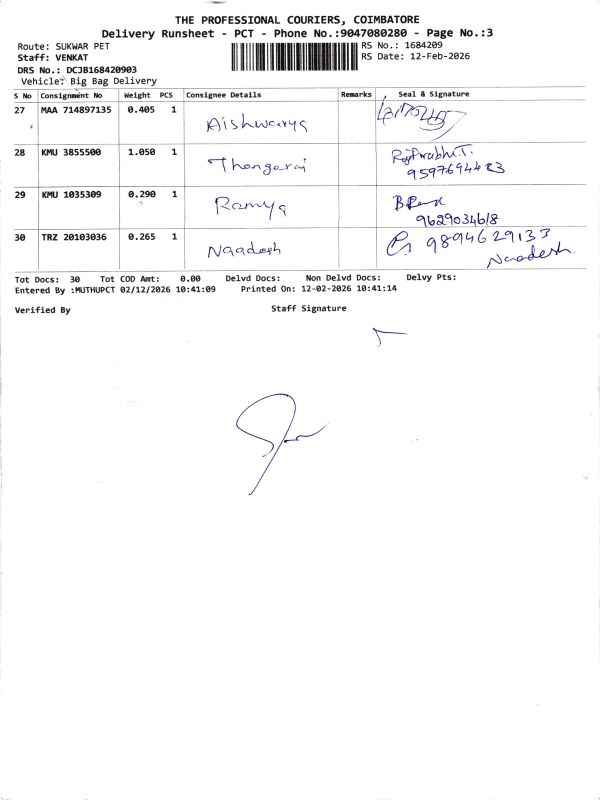 THE PROFESSIONAL COURIERS, COIMBATORE
Delivery Runsheet - PCT - Phone No.:9047080280 - Page No.:3
Route: SUKWAR PET
RS No.: 1684209
Staff: VENKAT
RS Date: 12-Feb-2026
DRS No.: DCJB168420903
Vehicle: Big Bag Delivery
S No Consignment No Weight PCS Consignee Details Remarks Seal & Signature
27 MAA 714897135 0.405 1 Aishwarya
28 KMU 3855500 1.050 1 Thangaraj Raj Prabhu.T.
9597694423
29 KMU 1035309 0.290 1 Ramya
9629034618
30 TRZ 20103036 0.265 1 Naadesh 9894629133
Naadesh.
Tot Docs: 30 Tot COD Amt: 0.00 Delvd Docs: Non Delvd Docs: Delvy Pts:
Entered By :MUTHUPCT 02/12/2026 10:41:09 Printed On: 12-02-2026 10:41:14
Verified By Staff Signature